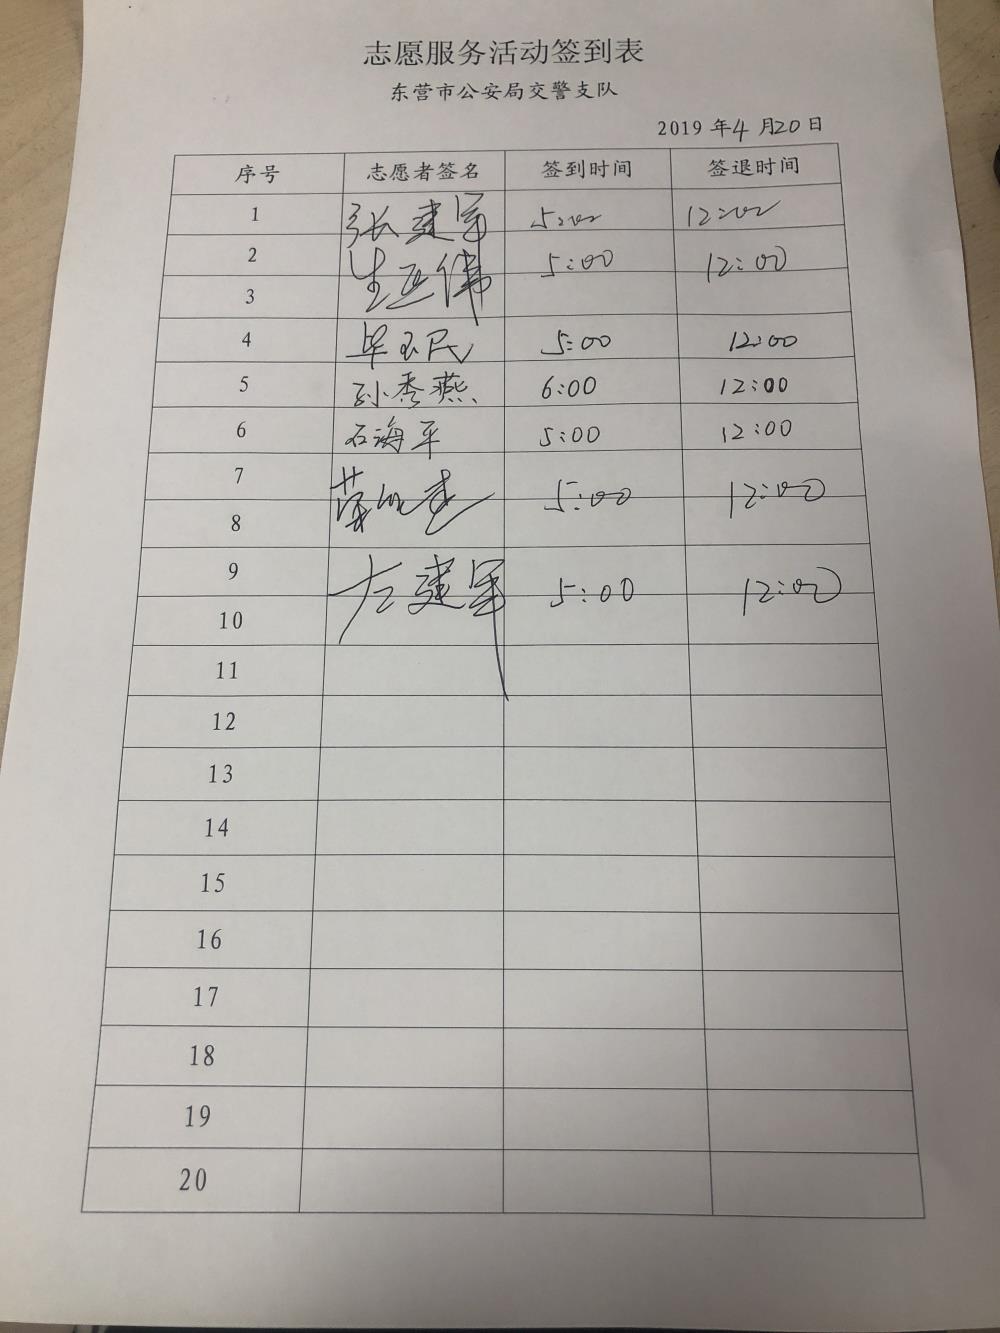 志愿服务活动签到表
东营市公安局交警支队
2019 年 4 月 20 日
序号 志愿者签名 签到时间 签退时间
1 张建军 5:00 12:00
2 生亚伟 5:00 12:00
3
4 毕玉民 5:00 12:00
5 孙秀燕 6:00 12:00
6 石海平 5:00 12:00
7 5:00 12:00
8
9 左建军 5:00 12:00
10
11
12
13
14
15
16
17
18
19
20